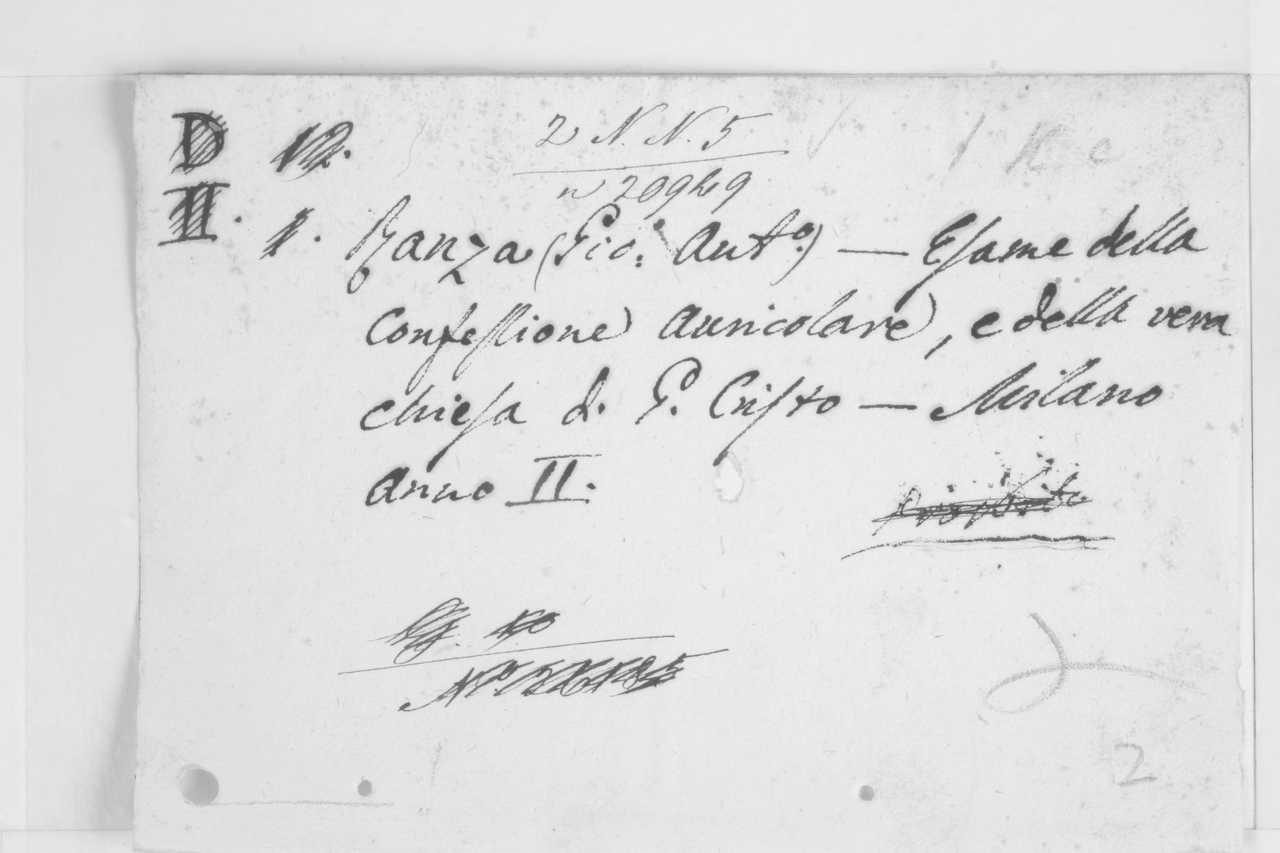 D 12. 2 N. N. 5
n 20949
II. 1. Ranza (Gio: Ant.º) — Esame della
Confessione auricolare, e della vera
chiesa di G. Cristo — Milano
anno II.
2